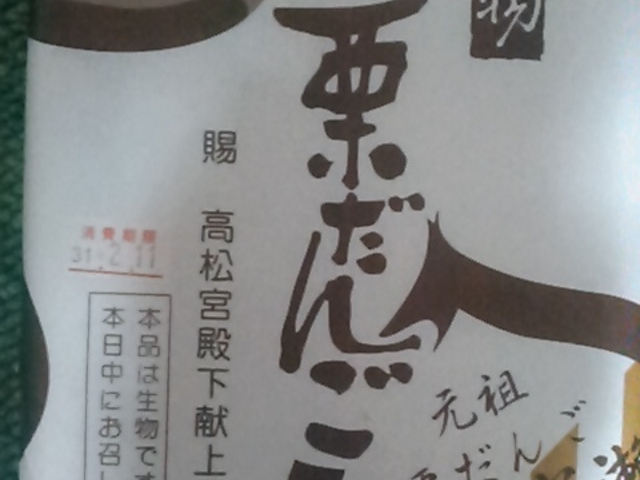 物
栗だんご
元祖
栗だんご
賜 高松宮殿下献上
消費期限
31.2.11
本品は生物です
本日中にお召し